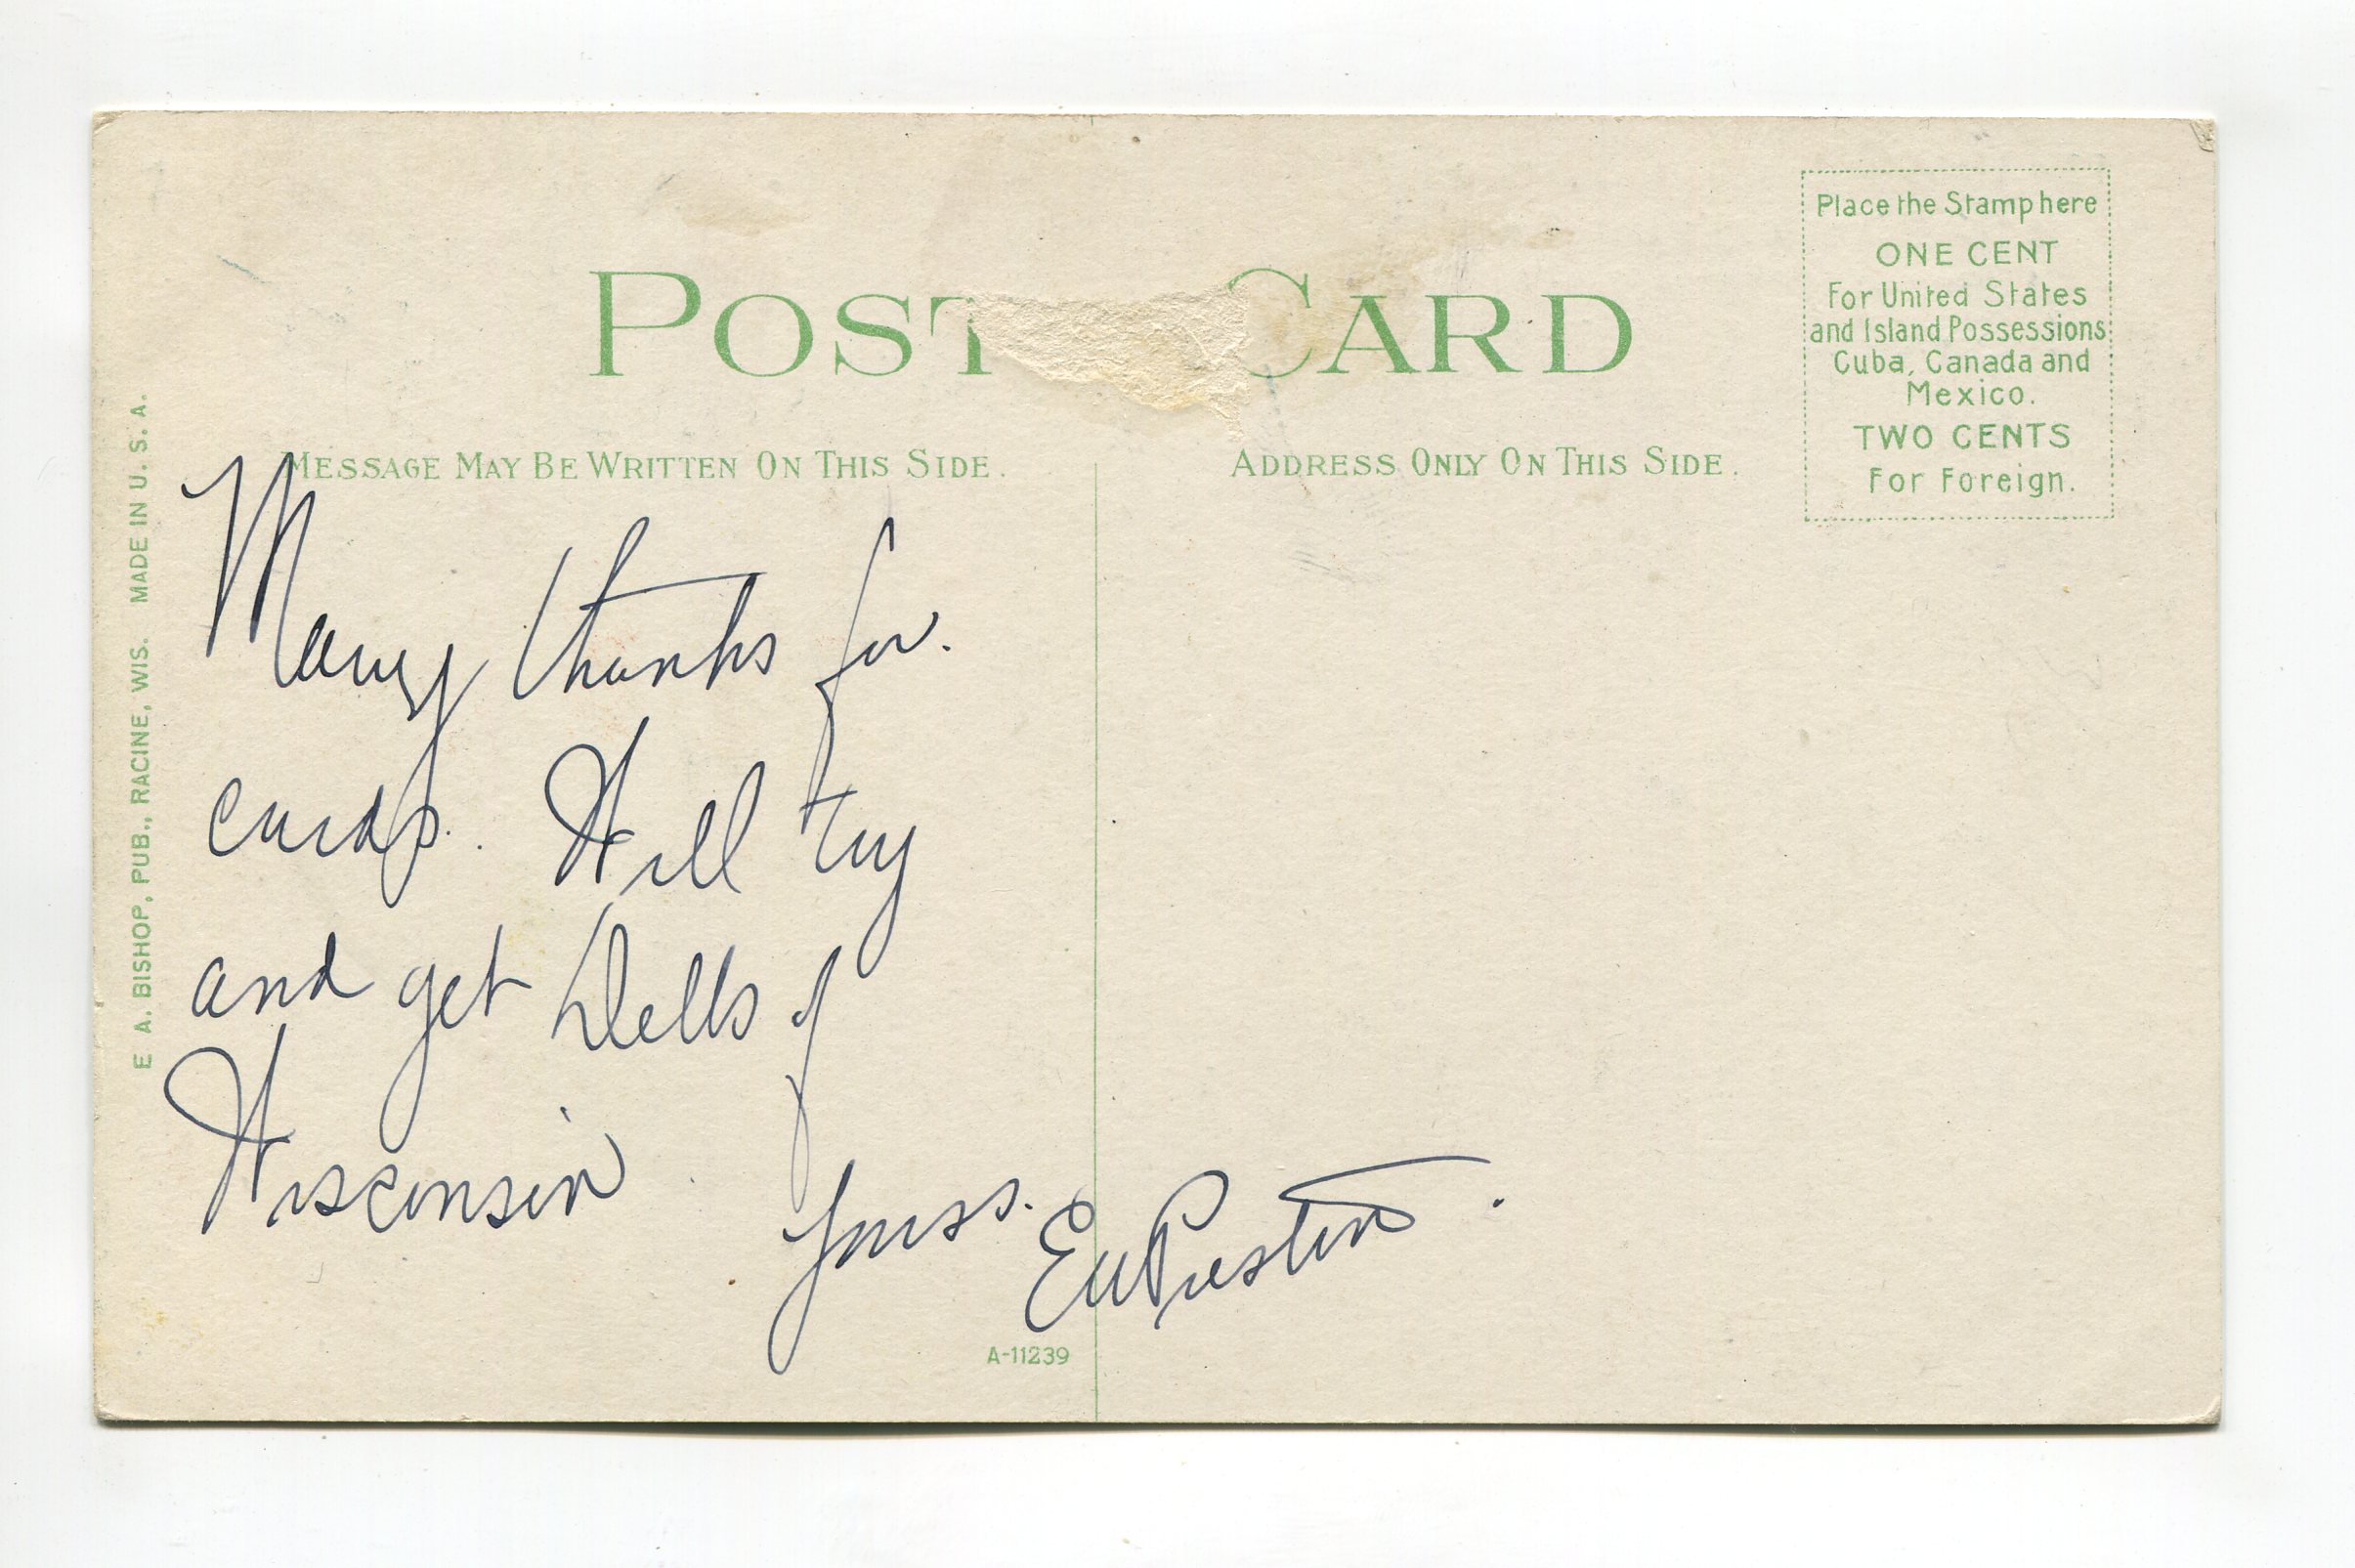 POST CARD
MESSAGE MAY BE WRITTEN ON THIS SIDE.
ADDRESS ONLY ON THIS SIDE.
Place the Stamp here
ONE CENT
For United States
and Island Possessions
Cuba, Canada and
Mexico.
TWO CENTS
For Foreign.
E. A. BISHOP, PUB., RACINE, WIS. MADE IN U. S. A.
Many thanks for.
cards. Will try
and get Dells of
Wisconsin.
Yours.
Preston.
A-11239